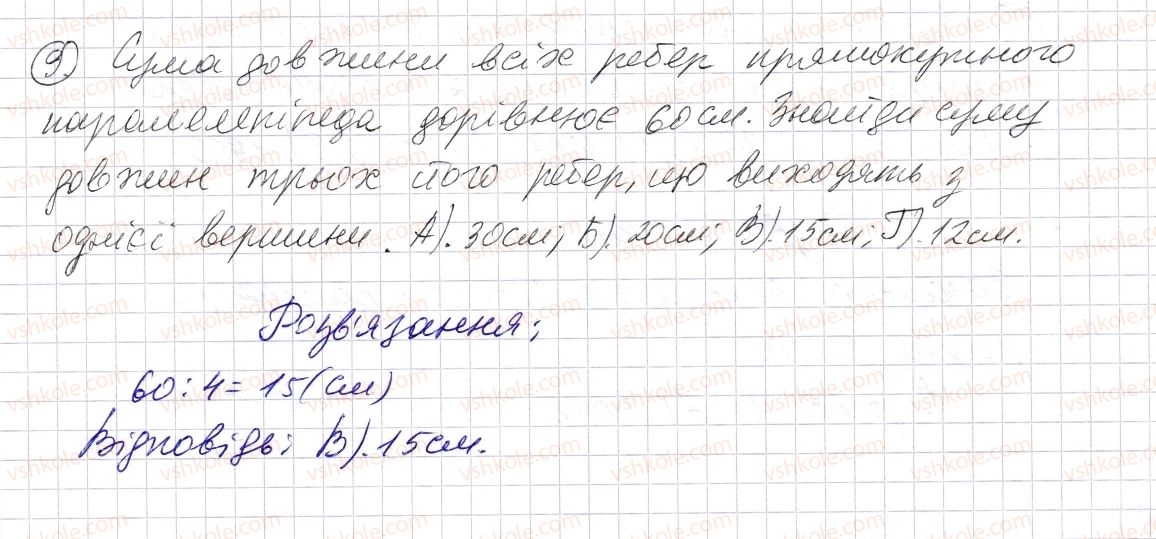 9. Сума довжини всіх ребер прямокутного
паралелепіпеда дорівнює 60см. Знайди суму
довжин трьох його ребер, що виходять з
однієї вершини. А). 30см; Б). 20см; В). 15см; Г). 12см.
Розв'язання:
60:4= 15(см)
Відповідь: В). 15см.